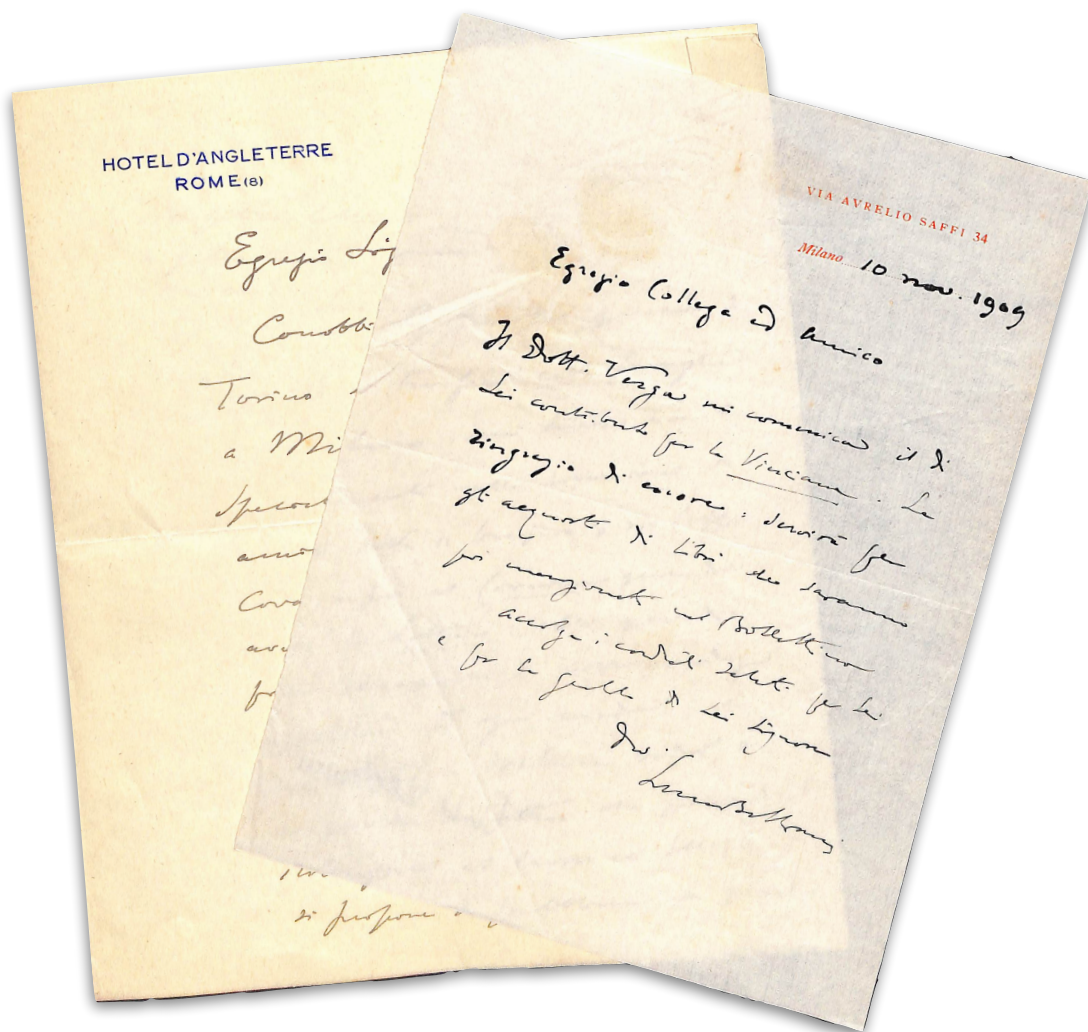 HOTEL D'ANGLETERRE
ROME (8)
Egregio Sig
Conobbi
Torino
a Mi
ami
Covo
si propone
VIA AVRELIO SAFFI 34
Milano 10 nov. 1909
Egregio Collega ed amico
Il Dott. Verga mi comunica il di
Lei contributo per la Vinciana. La
ringrazio di cuore: servirà per
gli acquisti di libri che saranno
poi menzionati nel Bollettino
accolga i cordiali saluti per Lei
e per la gentile di Lei Signora
dev.
Luca Beltrami